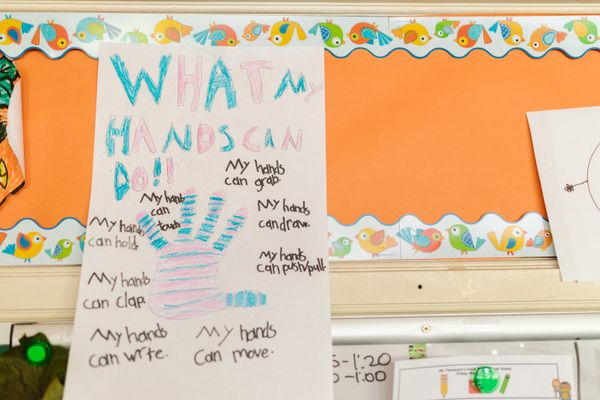 WHAT My
HANDS CAN
DO!!
My hands
can grap.
My hand
can
touch.
My hands
can draw.
My hands
can hold.
My hands
can push/pull.
My hands
can clap.
My hands
can write.
My hands
can move.
-1:20
-1:00